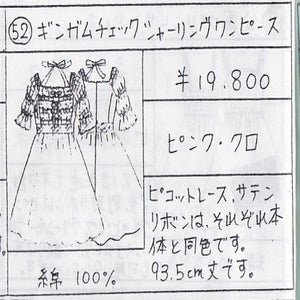 52 ギンガムチェックシャーリングワンピース
¥19,800
ピンク・クロ
ピコットレース、サテン
リボンは、それぞれ本
体と同色です。
93.5cm丈です。
綿 100%